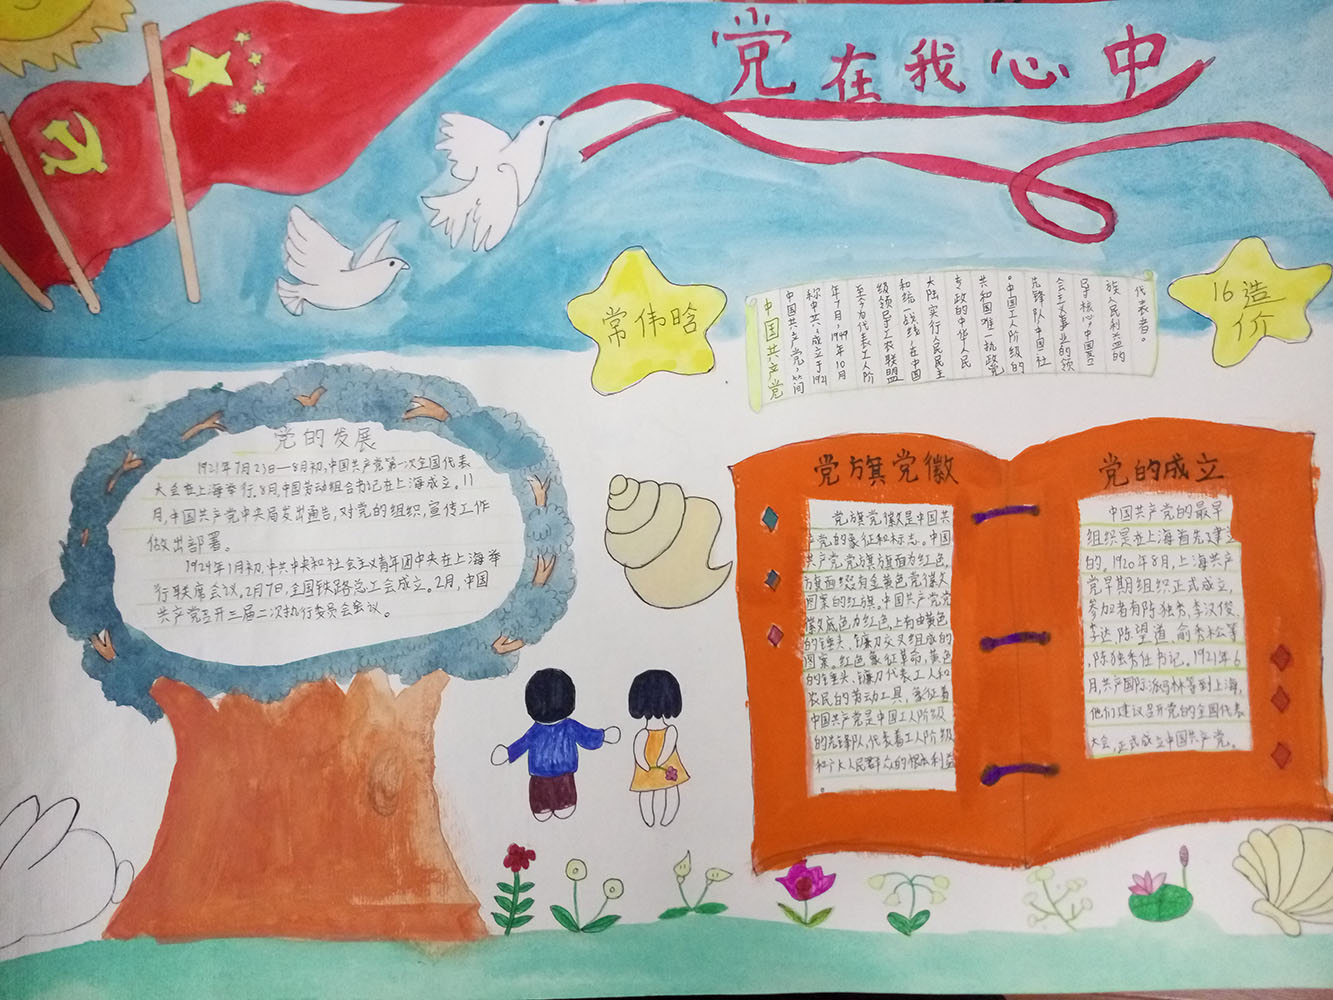 党在我心中
常伟晗
16造
价
中国共产党
中国共产党,简
称中共,成立于1921
年7月,1949年10月
至今为代表工人阶
级领导工农联盟
和统一战线,在中国
大陆实行人民民主
专政的中华人民
共和国唯一执政党
。中国工人阶级的
先锋队,中国社
会主义事业的领
导核心,中国各
族人民利益的
代表者。
党的发展
1921年7月23日—8月初,中国共产党第一次全国代表
大会在上海举行。8月,中国劳动组合书记在上海成立。11
月,中国共产党中央局发出通告,对党的组织,宣传工作
做出部署。
1924年1月初,中共中央和社会主义青年团中央在上海举
行联席会议。2月7日,全国铁路总工会成立。2月,中国
共产党召开三届二次执行委员会会议。
党旗党徽
党旗党徽是中国共
产党的象征和标志。中国
共产党党旗旗面为红色,
旗面缀有金黄色党徽
图案的红旗。中国共产党党
徽底色为红色,上有由黄色
的锤头、镰刀交叉组成的
图案。红色象征革命,黄色
的锤头、镰刀代表工人和
农民的劳动工具,象征着
中国共产党是中国工人阶级
的先锋队,代表着工人阶级
和广大人民群众的根本利益
。
党的成立
中国共产党的最早
组织是在上海首先建立
的。1920年8月,上海共产
党早期组织正式成立,
参加者有陈独秀,李汉俊
李达,陈望道,俞秀松等
,陈独秀任书记。1921年6
月,共产国际派马林等到上海,
他们建议召开党的全国代表
大会,正式成立中国共产党。